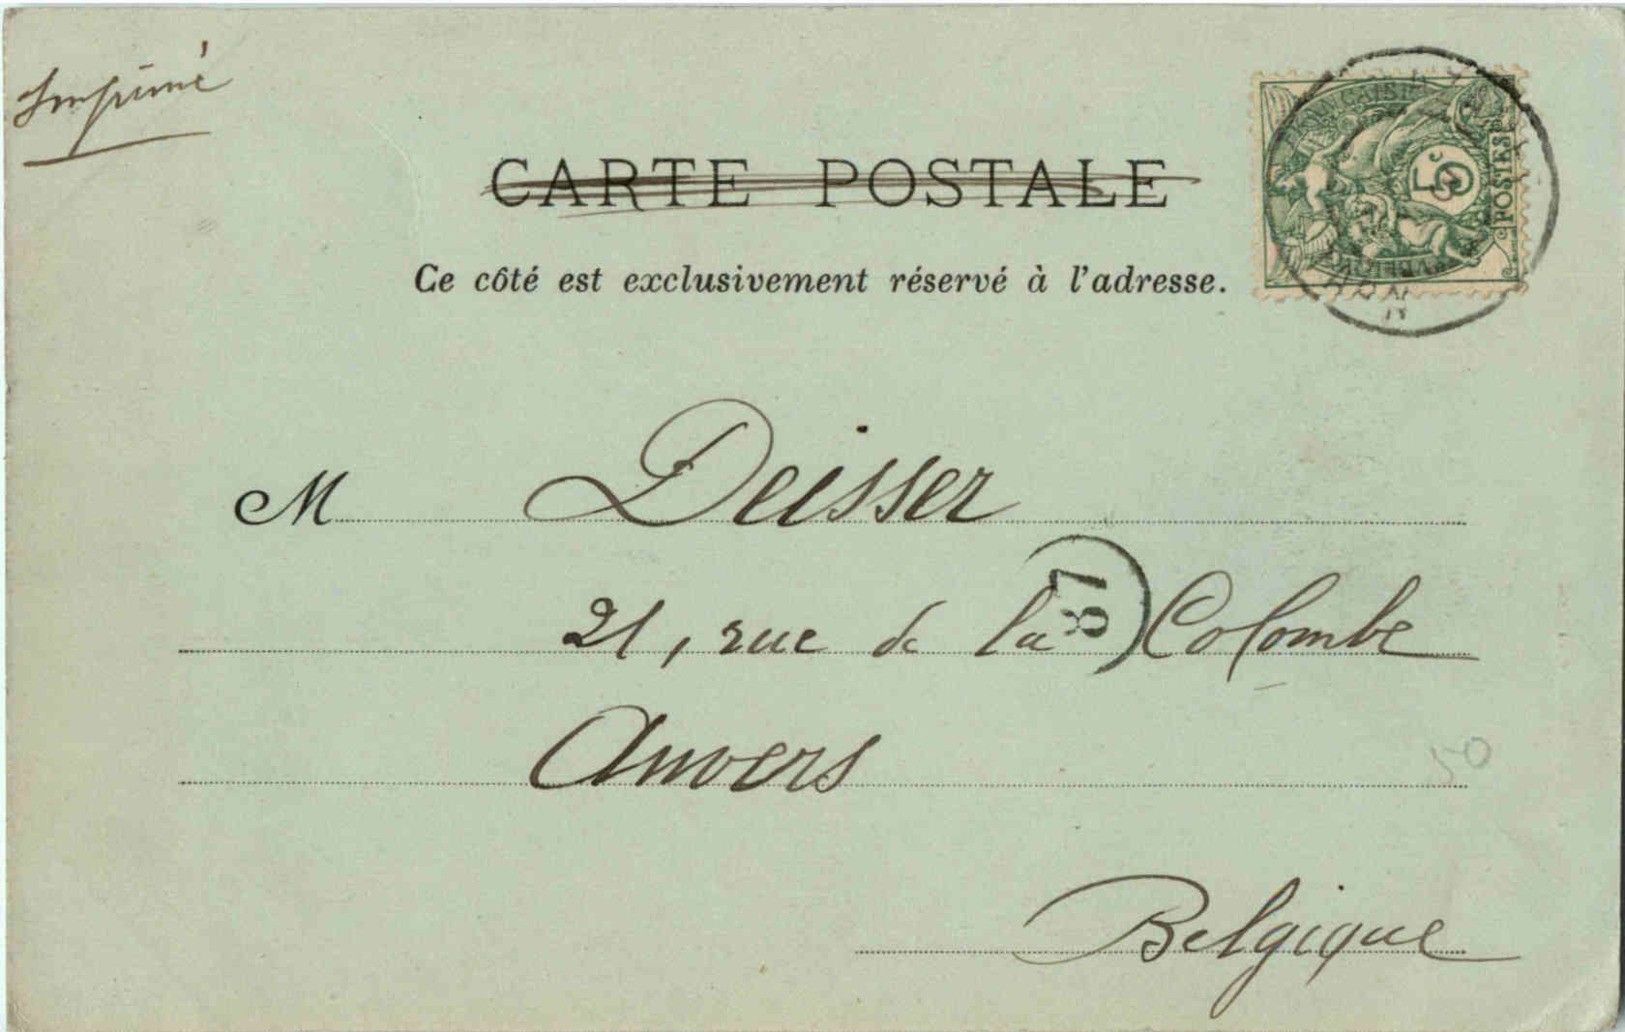 Imprimé
CARTE POSTALE
Ce côté est exclusivement réservé à l'adresse.
5c
POSTES
M Deisser
21, rue de la Colombe
87
Anvers
50
Belgique